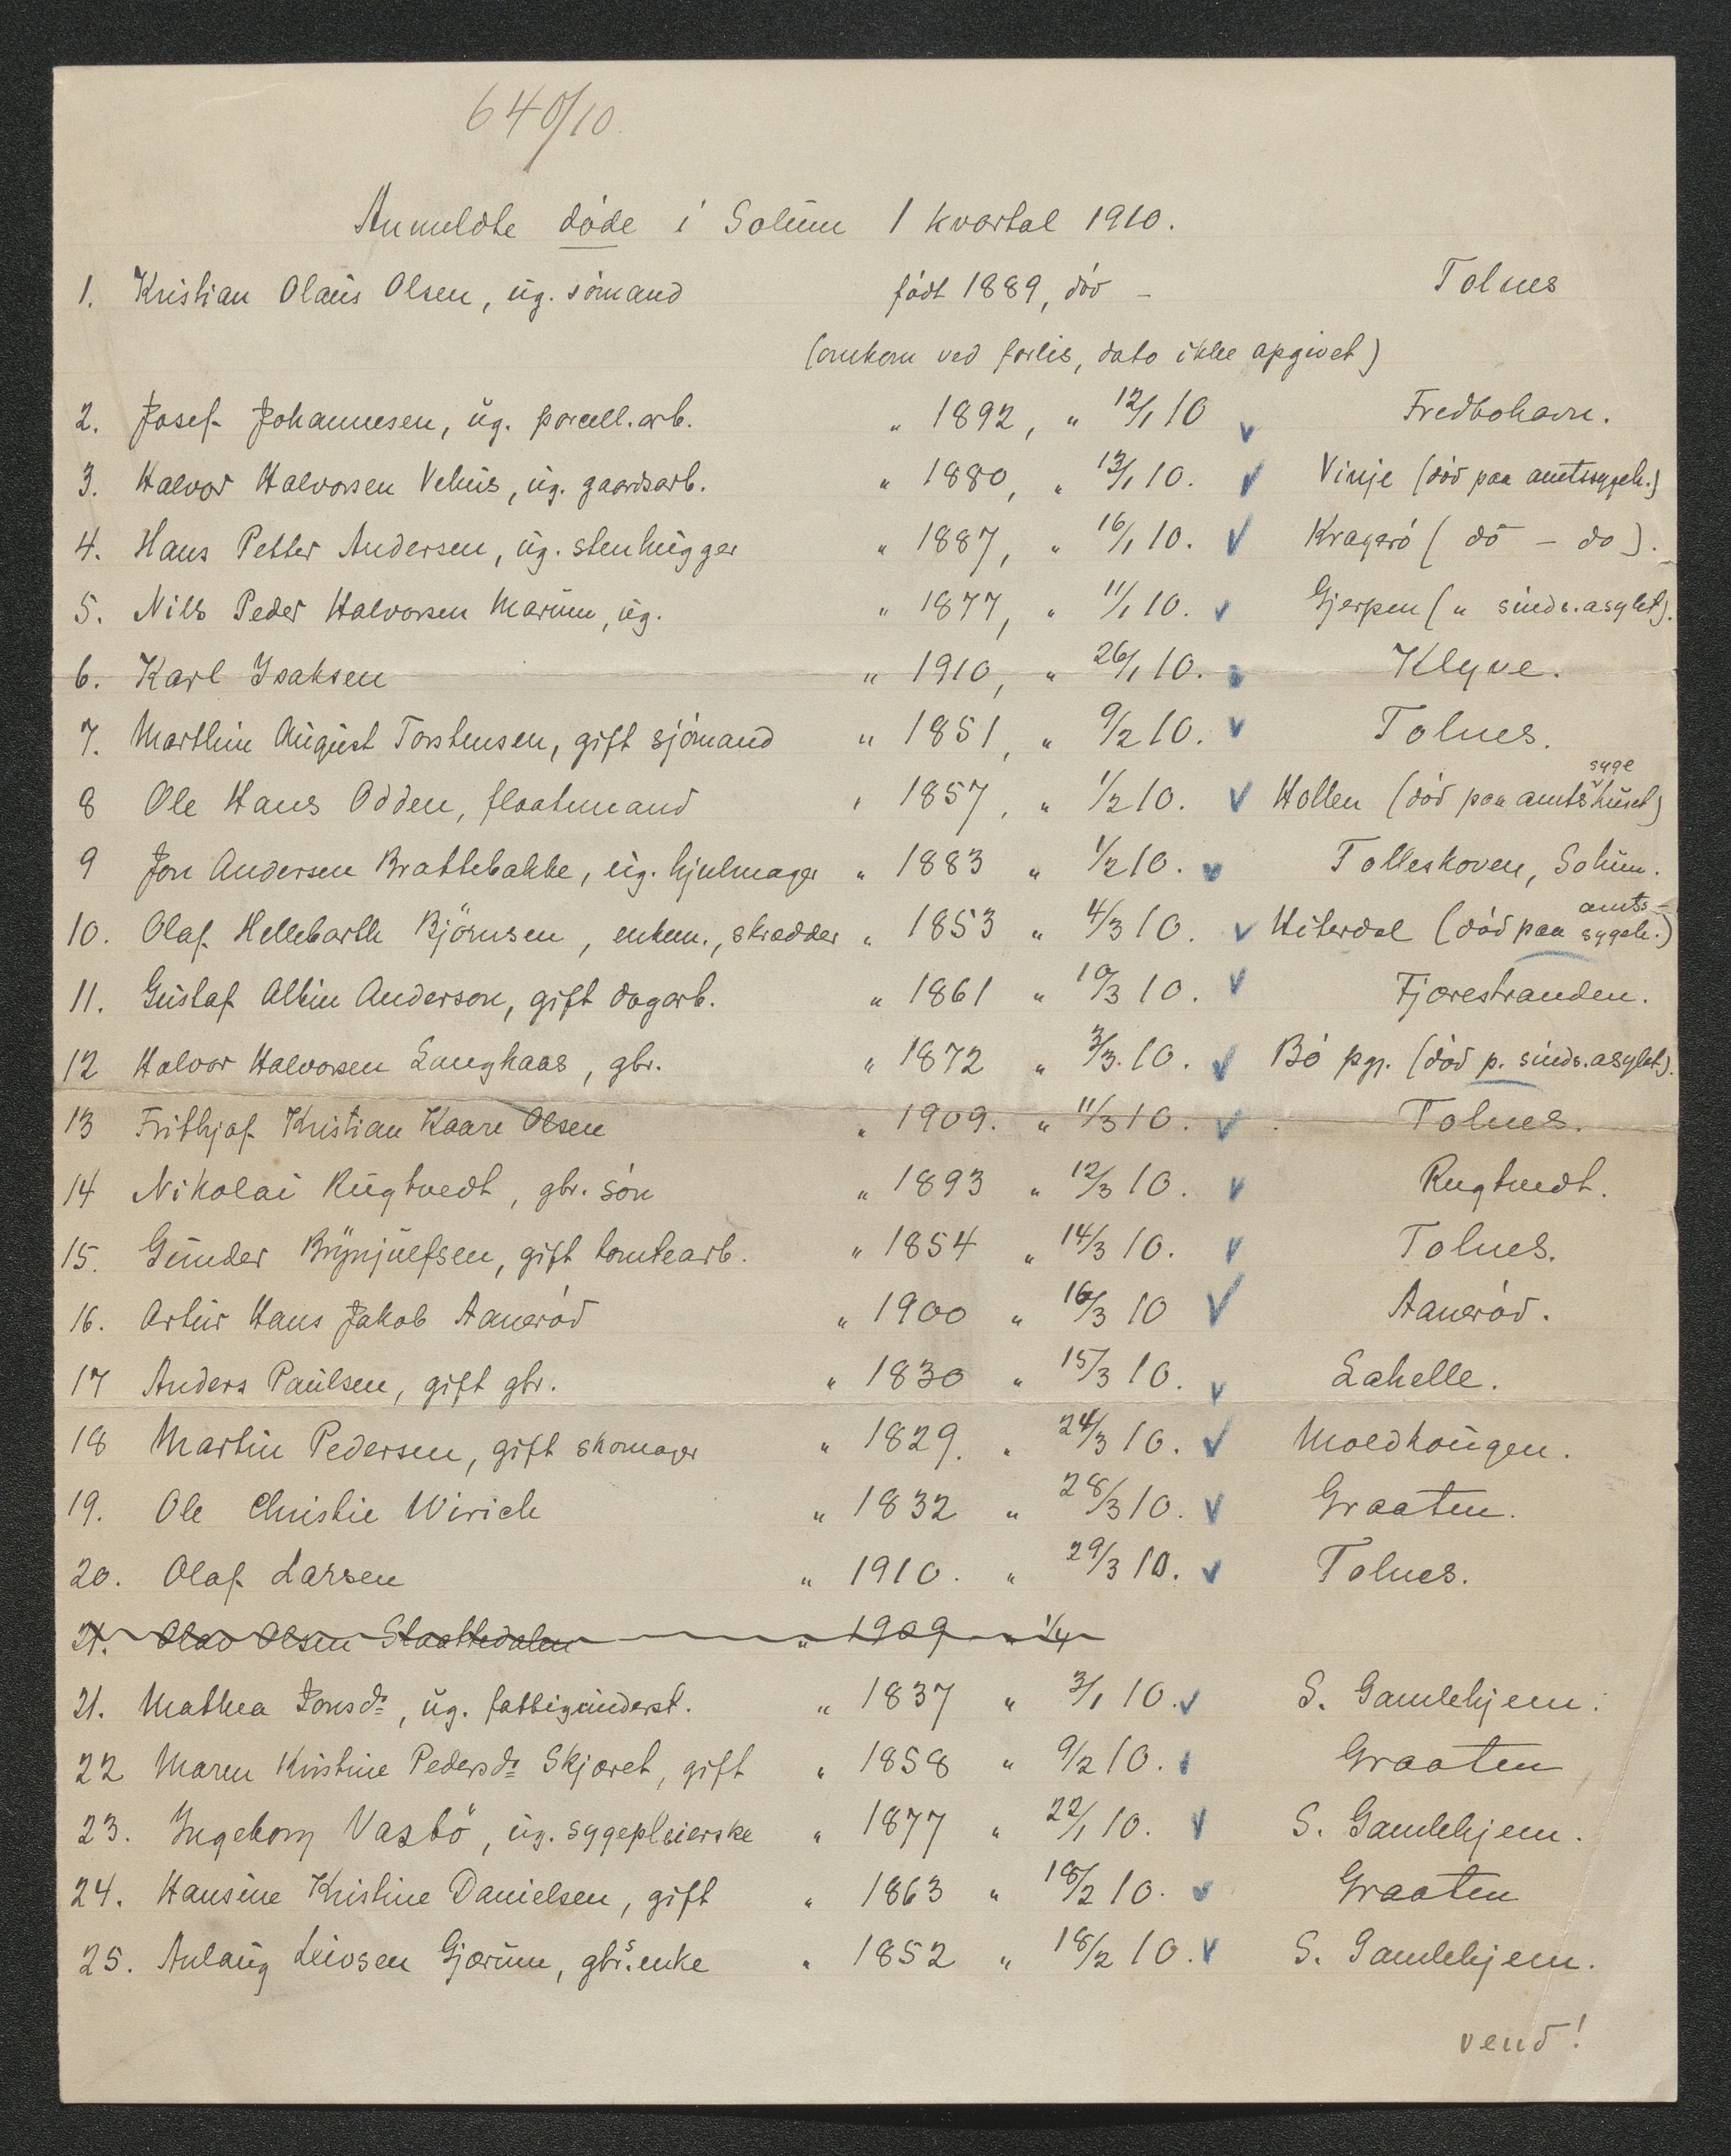 640/10.
Anmeldte døde i Solum 1 kvartal 1910.
1. Kristian Olaus Olsen, ug. sømand født 1889, død – Tolnes
(omkom ved forlis, dato ikke opgivet)
2. Josef Johannesen, ug. porcell.arb. " 1892, " 12/1 10 Fredbohavn.
3. Halvor Halvorsen Vehus, ug. gaardsarb. " 1880, " 13/1 10. Vinje (død paa amtssygeh.)
4. Hans Petter Andersen, ug. stenhugger " 1887, " 16/1 10. Kragerø ( do – do ).
5. Nils Peder Halvorsen Marum, ug. " 1877, " 11/1 10. Gjerpen ( " sinds.asylet).
6. Karl Isaksen " 1910, " 26/1 10. Klyve.
7. Marthin August Torstensen, gift sjømand " 1851, " 9/2 10. Tolnes.
8 Ole Hans Odden, flaatmand " 1857, " 1/2 10. Hollen (død paa amtssygehuset)
9 Jon Andersen Brattebakke, ug. hjulmager " 1883 " 1/2 10. Tolleskoven, Solum.
10. Olaf Hellebarth Björnsen, enkem., skrædder " 1853 " 4/3 10. Hiterdal (død paa amts-sygeh.)
11. Gustaf Albin Anderson, gift dagarb. " 1861 " 10/3 10. Fjærestranden.
12 Halvor Halvorsen Langkaas, gbr. " 1872 " 3/3. 10. Bø pgj. (død p. sinds.asylet).
13 Frithjof Kristian Kaare Olsen " 1909. " 11/3 10. Tolnes.
14 Nikolai Rugtvedt, gbr. søn " 1893 " 12/3 10. Rugtvedt.
15. Gunder Brynjulfsen, gift tomtearb. " 1854 " 14/3 10. Tolnes.
16. Artur Hans Jakob Aanerød " 1900 " 16/3 10 Aanerød.
17 Anders Paulsen, gift gbr. " 1830 " 15/3 10. Lahelle.
18 Martin Pedersen, gift skomager " 1829. " 24/3 10. Moldhaugen.
19. Ole Christie Wirich " 1832 " 28/3 10. Graaten.
20. Olaf Larsen " 1910. " 29/3 10. Tolnes.
21. Olav Olsen Slaattedalen " 1909 " 1/4
21. Mathea Jonsdr, ug. fattigunderst. " 1837 " 3/1 10. S. Gamlehjem.
22 Maren Kristine Pedersdr Skjæret, gift " 1858 " 9/2 10. Graaten
23. Ingeborg Vasbö, ug. sygepleierske " 1877 " 22/1 10. S. Gamlehjem.
24. Hansine Kristine Danielsen, gift " 1863 " 18/2 10. Graaten
25. Anlaug Leivsen Gjærum, gbr.s enke " 1852 " 18/2 10. S. Gamlehjem.
vend!